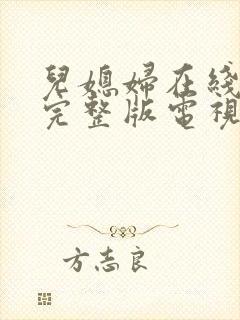 兒媳婦在綫
完整版電視
方志良